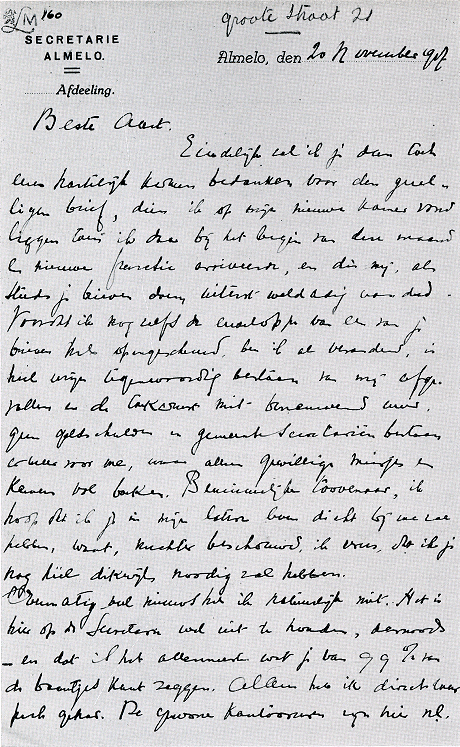 LM 160
groote Straat 21
SECRETARIE
ALMELO.
Almelo, den 20 November 1907
Afdeeling.
Beste Aart.
Eindelijk zal ik je dan toch
eens hartelijk komen bedanken voor den
brief, dien ik op mijn nieuwe kamer vond
liggen toen ik daar bij het begin van deze maand
en nieuwe functie arriveerde, en die mij, als
steeds je brieven doen, uiterst weldadig aandeed.
Voordat ik nog zelfs de enveloppe van een van je
brieven heb opengescheurd, ben ik al veranderd, is
heel mijn tegenwoordig bestaan van mij afge-
vallen en de
geen geldschulden en gemeente Secretarieën bestaan
er meer voor me, maar alleen gewillige meisjes en
Beminnelijke toovenaar, ik
hoop dat ik je in mijn latere leven dicht bij me zal
hebben, want, nuchter beschouwd, ik vrees, dat ik je
nog heel dikwijls noodig zal hebben.
veel nieuws heb ik natuurlijk niet. Het is
hier op de Secretarie wel uit te houden,
— en dat is het allermeest wat je van 99% van
de baantjes kunt zeggen. Alleen heb ik direct weer
pech gehad. De gewone kantooruren zijn hier nl.